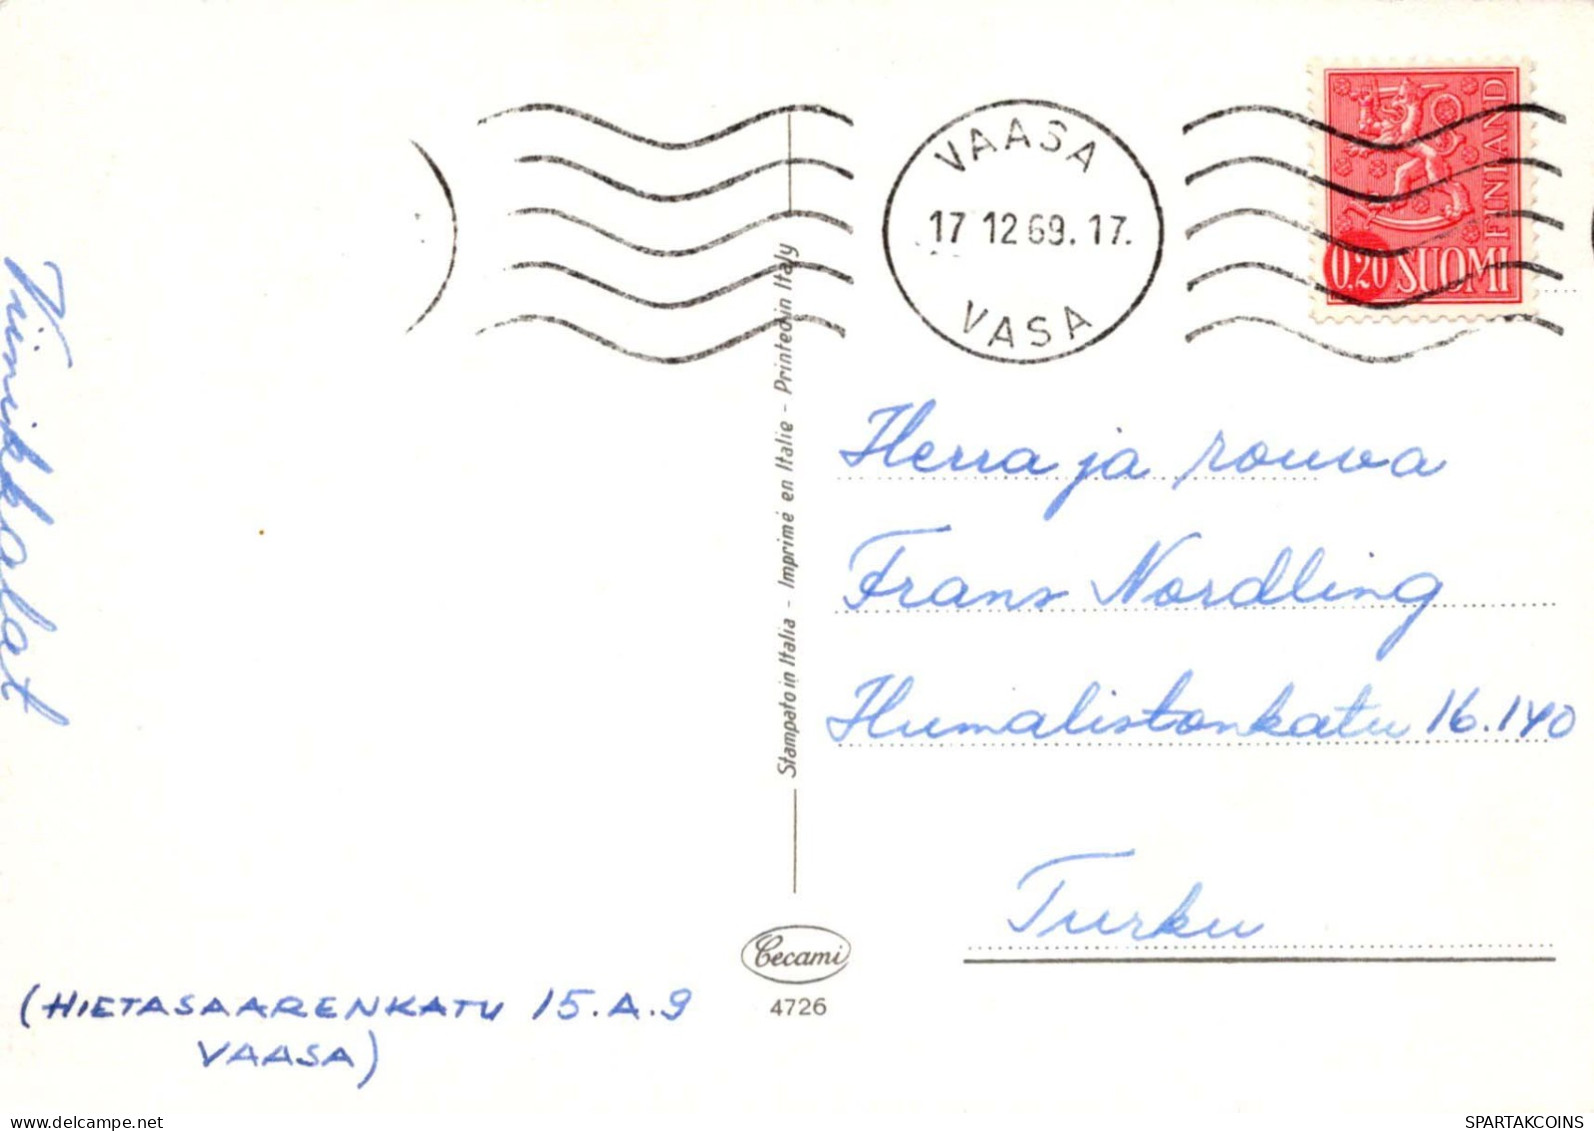 VAASA
17 12 69. 17.
VASA
FINLAND
0,20 SUOMI
Herra ja rouva
Frans Nordling
Humalistonkatu 16.140
Turku
Stampato in Italia - Imprimé en Italie - Printed in Italy
Cecami
4726
(HIETASAARENKATU 15.A.9
VAASA)
delcampe.net
SPARTAKCOINS